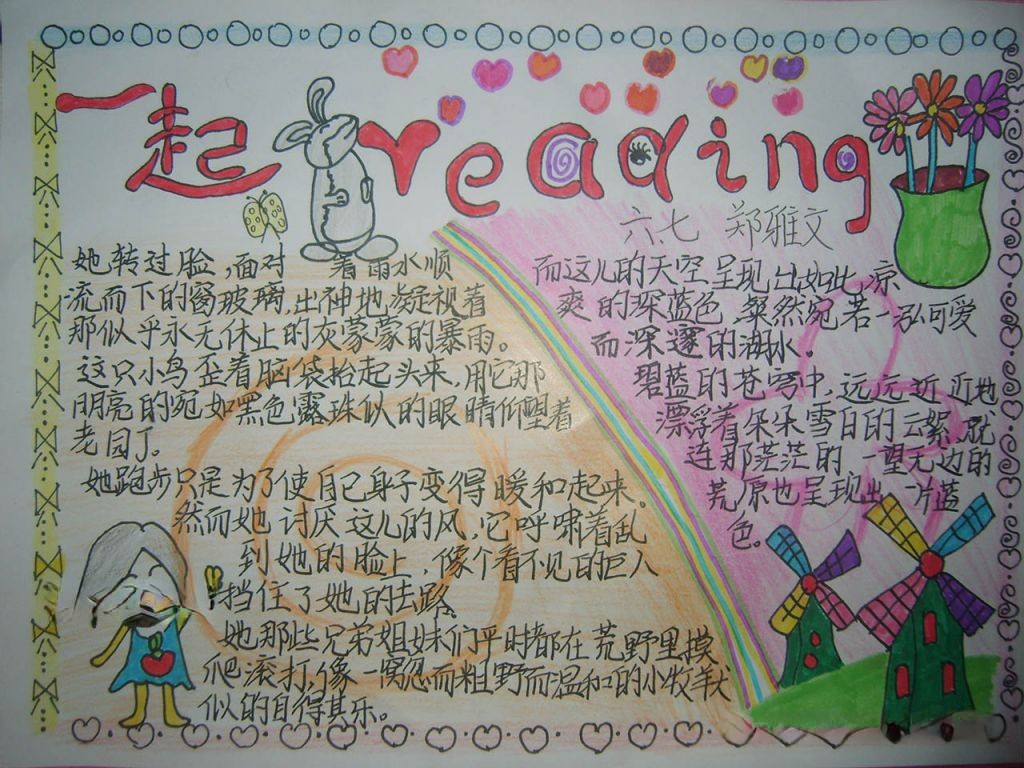 一起 reading
六、七 郑雅文
她转过脸,面对着雨水顺
流而下的窗玻璃,出神地凝视着
那似乎永无休止的灰蒙蒙的暴雨。
这只小鸟歪着脑袋抬起头来,用它那
明亮的宛如黑色露珠似的眼睛仰望着
老园丁。
她跑步只是为了使自己身子变得暖和起来。
然而她讨厌这儿的风,它呼啸着乱
到她的脸上,像个看不见的巨人
挡住了她的去路。
她那些兄弟姐妹们平时都在荒野里摸
爬滚打,像一窝忽而粗野而温和的小牧羊犬
似的自得其乐。
而这儿的天空呈现出如此凉
爽的深蓝色,粲然宛若一泓可爱
而深邃的湖水。
碧蓝的苍穹中,远远近近地
漂浮着朵朵雪白的云絮,就
连那茫茫的一望无边的
荒原也呈现出一片蓝
色。